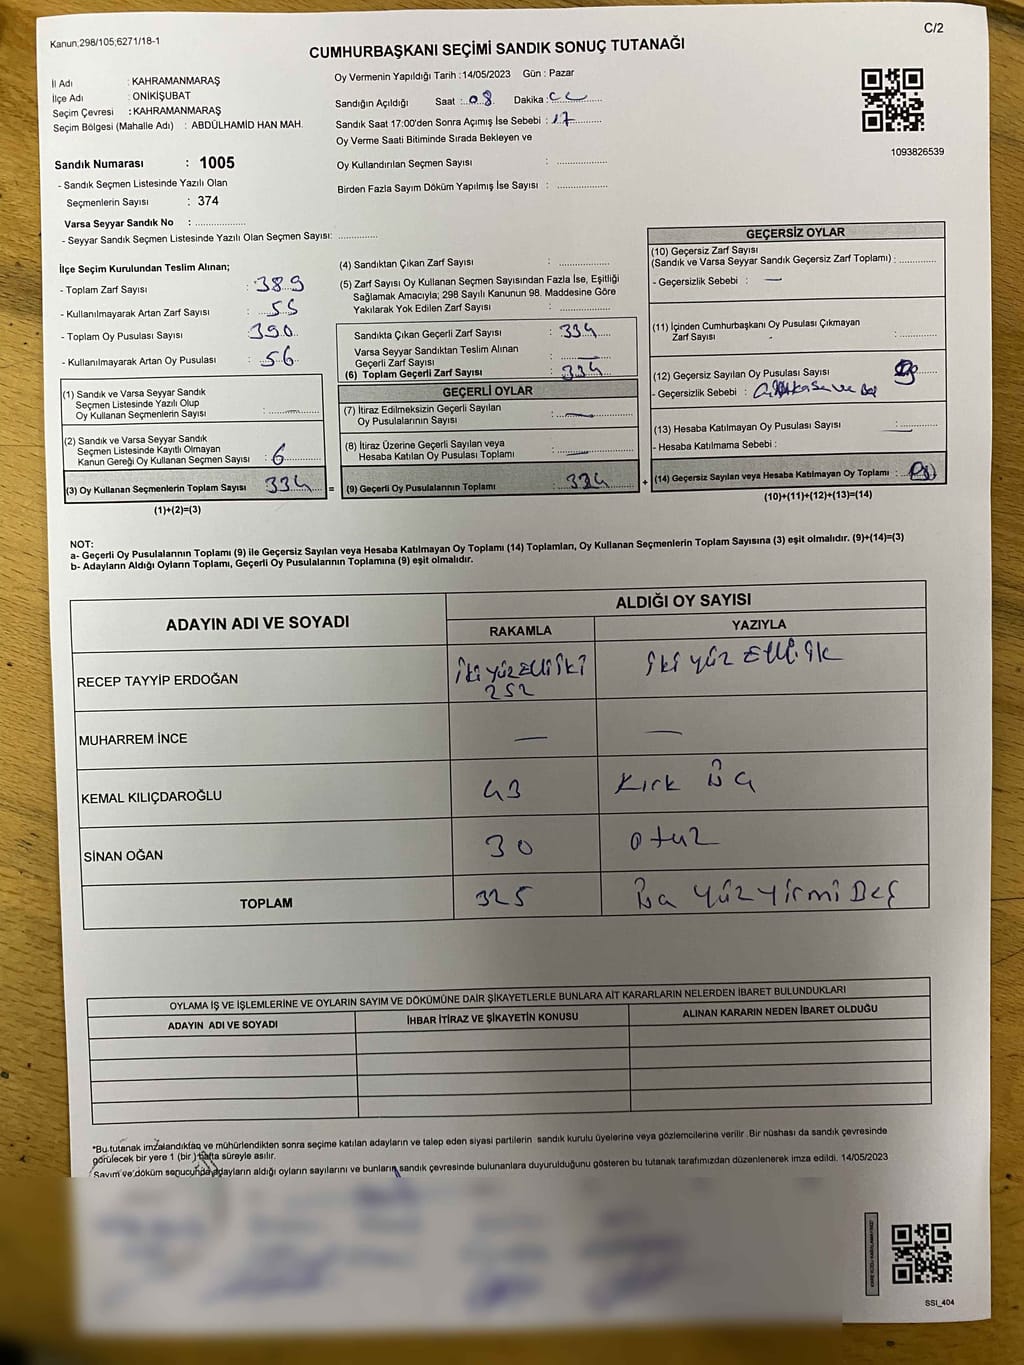 Kanun,298/105;6271/18-1
C/2
CUMHURBAŞKANI SEÇİMİ SANDIK SONUÇ TUTANAĞI
İl Adı : KAHRAMANMARAŞ
İlçe Adı : ONİKİŞUBAT
Seçim Çevresi : KAHRAMANMARAŞ
Seçim Bölgesi (Mahalle Adı) : ABDÜLHAMİD HAN MAH.
Oy Vermenin Yapıldığı Tarih :14/05/2023 Gün : Pazar
Sandığın Açıldığı Saat : 08 Dakika :
Sandık Saat 17:00'den Sonra Açımış İse Sebebi : 17
Oy Verme Saati Bitiminde Sırada Bekleyen ve
Oy Kullandırılan Seçmen Sayısı :
Birden Fazla Sayım Döküm Yapılmış İse Sayısı :
1093826539
Sandık Numarası : 1005
- Sandık Seçmen Listesinde Yazılı Olan
Seçmenlerin Sayısı : 374
Varsa Seyyar Sandık No :
- Seyyar Sandık Seçmen Listesinde Yazılı Olan Seçmen Sayısı:
İlçe Seçim Kurulundan Teslim Alınan;
- Toplam Zarf Sayısı : 389
- Kullanılmayarak Artan Zarf Sayısı : 55
- Toplam Oy Pusulası Sayısı : 390
- Kullanılmayarak Artan Oy Pusulası : 56
(1) Sandık ve Varsa Seyyar Sandık
Seçmen Listesinde Yazılı Olup
Oy Kullanan Seçmenlerin Sayısı : —
(2) Sandık ve Varsa Seyyar Sandık
Seçmen Listesinde Kayıtlı Olmayan
Kanun Gereği Oy Kullanan Seçmen Sayısı : 6
(3) Oy Kullanan Seçmenlerin Toplam Sayısı 334 =
(1)+(2)=(3)
(4) Sandıktan Çıkan Zarf Sayısı :
(5) Zarf Sayısı Oy Kullanan Seçmen Sayısından Fazla İse, Eşitliği
Sağlamak Amacıyla; 298 Sayılı Kanunun 98. Maddesine Göre
Yakılarak Yok Edilen Zarf Sayısı :
Sandıkta Çıkan Geçerli Zarf Sayısı : 334
Varsa Seyyar Sandıktan Teslim Alınan
Geçerli Zarf Sayısı : —
(6) Toplam Geçerli Zarf Sayısı : 334
GEÇERLİ OYLAR
(7) İtiraz Edilmeksizin Geçerli Sayılan
Oy Pusulasının Sayısı : —
(8) İtiraz Üzerine Geçerli Sayılan veya
Hesaba Katılan Oy Pusulası Toplamı : —
(9) Geçerli Oy Pusulalarının Toplamı : 334 +
GEÇERSİZ OYLAR
(10) Geçersiz Zarf Sayısı
(Sandık ve Varsa Seyyar Sandık Geçersiz Zarf Toplamı) :
- Geçersizlik Sebebi : —
(11) İçinden Cumhurbaşkanı Oy Pusulası Çıkmayan
Zarf Sayısı :
(12) Geçersiz Sayılan Oy Pusulası Sayısı :
- Geçersizlik Sebebi :
(13) Hesaba Katılmayan Oy Pusulası Sayısı : —
- Hesaba Katılmama Sebebi :
(14) Geçersiz Sayılan veya Hesaba Katılmayan Oy Toplamı :
(10)+(11)+(12)+(13)=(14)
NOT:
a- Geçerli Oy Pusulalarının Toplamı (9) ile Geçersiz Sayılan veya Hesaba Katılmayan Oy Toplamı (14) Toplamları, Oy Kullanan Seçmenlerin Toplam Sayısına (3) eşit olmalıdır. (9)+(14)=(3)
b- Adayların Aldığı Oyların Toplamı, Geçerli Oy Pusulalarının Toplamına (9) eşit olmalıdır.
ADAYIN ADI VE SOYADI ALDIĞI OY SAYISI
RAKAMLA YAZIYLA
RECEP TAYYİP ERDOĞAN iki yüz Elli iki 252 iki yüz Elli ik
MUHARREM İNCE — —
KEMAL KILIÇDAROĞLU 43 Kırk üç
SİNAN OĞAN 30 otuz
TOPLAM 325 üç yüz yirmi Beş
OYLAMA İŞ VE İŞLEMLERİNE VE OYLARIN SAYIM VE DÖKÜMÜNE DAİR ŞİKAYETLERLE BUNLARA AİT KARARLARIN NELERDEN İBARET BULUNDUKLARI
ADAYIN ADI VE SOYADI İHBAR İTİRAZ VE ŞİKAYETİN KONUSU ALINAN KARARIN NEDEN İBARET OLDUĞU
*Bu tutanak imzalandıktan ve mühürlendikten sonra seçime katılan adayların ve talep eden siyasi partilerin sandık kurulu üyelerine veya gözlemcilerine verilir .Bir nüshası da sandık çevresinde
görülecek bir yere 1 (bir ) hafta süreyle asılır.
Sayım ve döküm sonucunda adayların aldığı oyların sayılarını ve bunların sandık çevresinde bulunanlara duyurulduğunu gösteren bu tutanak tarafımızdan düzenlenerek imza edildi. 14/05/2023
SSI_404